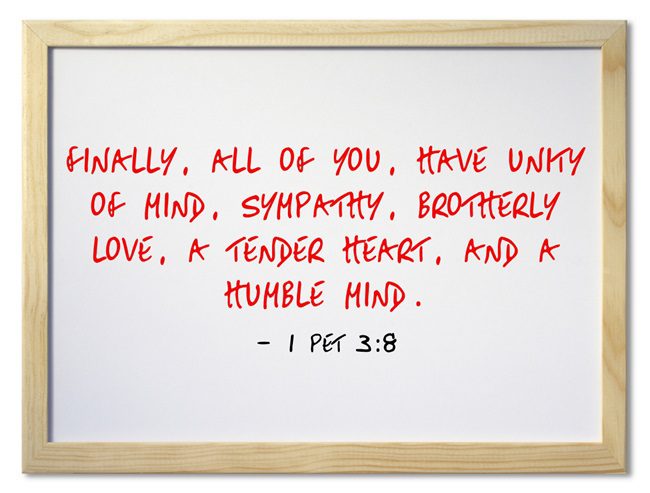 FINALLY, ALL OF YOU, HAVE UNITY
OF MIND, SYMPATHY, BROTHERLY
LOVE, A TENDER HEART, AND A
HUMBLE MIND.
- 1 PET 3:8